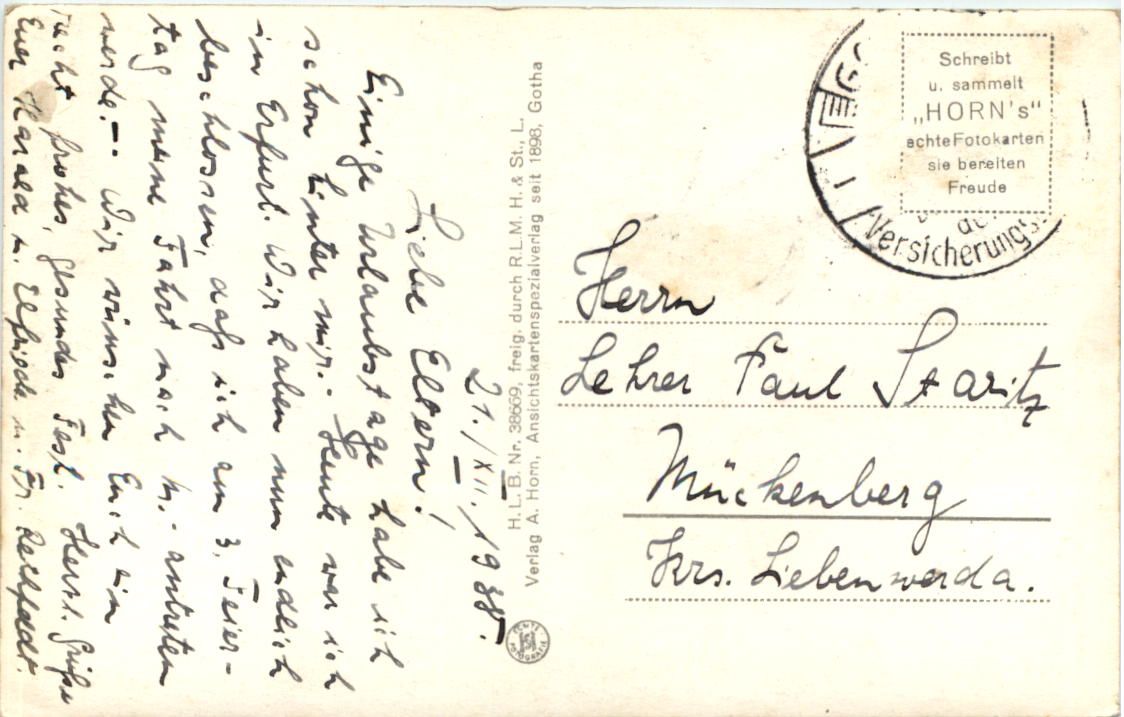 21./XII. 1938.
Liebe Eltern!
Einige Urlaubstage habe ich
schon hinter mir. - Heute war ich
in Erfurt. Wir haben nun endlich
beschlossen, daß ich am 3. Feier-
tag meine Fahrt nach M. - antreten
werde. - Wir wünschen Euch ein
recht frohes, gesundes Fest. Herzl. Grüße
Euer Harald u. Elfriede u. Fr.
H. L. B. Nr. 38669, freig. durch R.L.M. H. & St., L.
Verlag A. Horn, Ansichtskartenspezialverlag seit 1898, Gotha
ECHTE
FOTOGRAFIE
Schreibt
u. sammelt
„HORN's“
echte Fotokarten
sie bereiten
Freude
Versicherungs
Herrn
Lehrer Paul Staritz
Mückenberg
Krs. Liebenwerda.